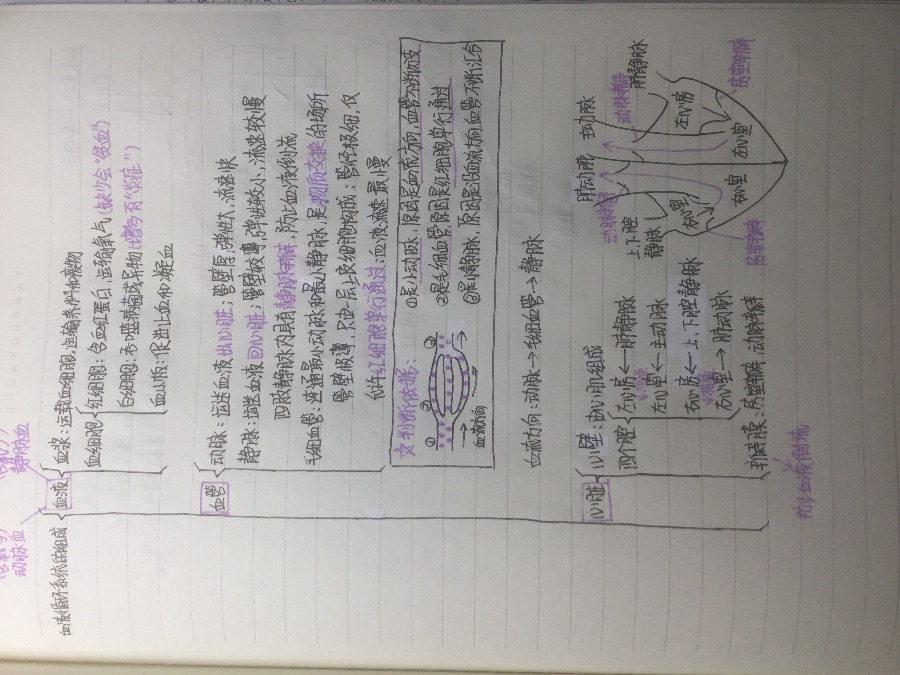 血液循环系统的组成
动脉血
静脉血
血液
血浆：运载血细胞，运输养料和废物
血细胞
红细胞：含血红蛋白，运输氧气（缺少会“贫血”）
白细胞：吞噬病菌或异物（增多有“炎症”）
血小板：促进止血和凝血
血管
动脉：运送血液出心脏；管壁厚，弹性大，流速快
静脉：运送血液回心脏；管壁较薄，弹性较小，流速较慢
四肢静脉内具有静脉瓣，防止血液倒流
毛细血管：连通最小动脉和最小静脉，是物质交换的场所
管壁极薄，只由一层上皮细胞构成；管径极细，仅
允许红细胞单行通过；血液流速最慢
判断依据：
① ② ③
血流方向
①是小动脉，原因是血流方向，血管不断分支
②是毛细血管，原因是红细胞单行通过
③是小静脉，原因是沿血流方向，血管不断汇合
血流方向：动脉→毛细血管→静脉
心脏
心壁：由心肌组成
四个腔
左心房←肺静脉
左心室←主动脉
右心房←上、下腔静脉
右心室→肺动脉
瓣膜：房室瓣，动脉瓣
防止血液倒流
肺动脉
主动脉
动脉瓣
动脉瓣
肺静脉
上、下腔
静脉
左心房
左心室
右心室
房室瓣
房室瓣